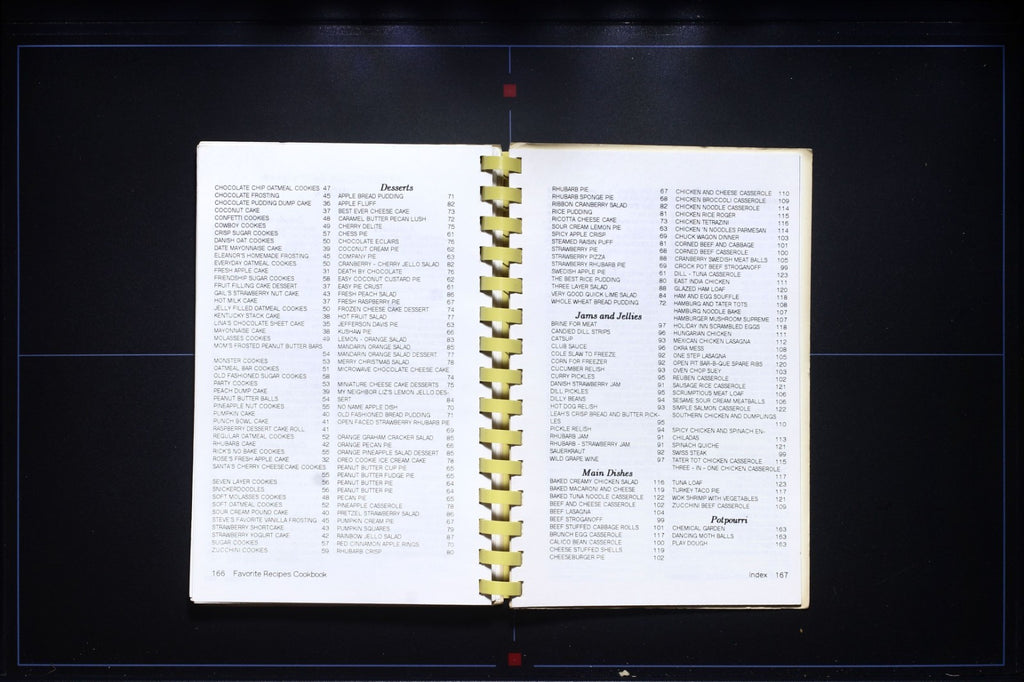 CHOCOLATE CHIP OATMEAL COOKIES 47
CHOCOLATE FROSTING 45
CHOCOLATE PUDDING DUMP CAKE 36
COCONUT CAKE 37
CONFETTI COOKIES 48
COWBOY COOKIES 49
CRISP SUGAR COOKIES 57
DANISH OAT COOKIES 50
DATE MAYONNAISE CAKE 39
ELEANOR'S HOMEMADE FROSTING 45
EVERYDAY OATMEAL COOKIES 50
FRESH APPLE CAKE 31
FRIENDSHIP SUGAR COOKIES 58
FRUIT FILLING CAKE DESSERT 37
GAIL'S STRAWBERRY NUT CAKE 43
HOT MILK CAKE 37
JELLY FILLED OATMEAL COOKIES 50
KENTUCKY STACK CAKE 38
LINA'S CHOCOLATE SHEET CAKE 35
MAYONNAISE CAKE 38
MOLASSES COOKIES 49
MOM'S FROSTED PEANUT BUTTER BARS
54
MONSTER COOKIES 53
OATMEAL BAR COOKIES 51
OLD FASHIONED SUGAR COOKIES 58
PARTY COOKIES 53
PEACH DUMP CAKE 39
PEANUT BUTTER BALLS 54
PINEAPPLE NUT COOKIES 55
PUMPKIN CAKE 40
PUNCH BOWL CAKE 41
RASPBERRY DESSERT CAKE ROLL 41
REGULAR OATMEAL COOKIES 52
RHUBARB CAKE 42
RICK'S NO BAKE COOKIES 55
ROSE'S FRESH APPLE CAKE 32
SANTA'S CHERRY CHEESECAKE COOKIES
55
SEVEN LAYER COOKIES 56
SNICKERDOODLES 56
SOFT MOLASSES COOKIES 48
SOFT OATMEAL COOKIES 52
SOUR CREAM POUND CAKE 40
STEVE'S FAVORITE VANILLA FROSTING 45
STRAWBERRY SHORTCAKE 43
STRAWBERRY YOGURT CAKE 42
SUGAR COOKIES 57
ZUCCHINI COOKIES 59
Desserts
APPLE BREAD PUDDING 71
APPLE FLUFF 82
BEST EVER CHEESE CAKE 73
CARAMEL BUTTER PECAN LUSH 72
CHERRY DELITE 75
CHESS PIE 61
CHOCOLATE ECLAIRS 76
COCONUT CREAM PIE 62
COMPANY PIE 63
CRANBERRY - CHERRY JELLO SALAD 82
DEATH BY CHOCOLATE 76
EASY COCONUT CUSTARD PIE 62
EASY PIE CRUST 61
FRESH PEACH SALAD 86
FRESH RASPBERRY PIE 67
FROZEN CHEESE CAKE DESSERT 74
HOT FRUIT SALAD 77
JEFFERSON DAVIS PIE 63
KUSHAW PIE 66
LEMON - ORANGE SALAD 83
MANDARIN ORANGE SALAD 85
MANDARIN ORANGE SALAD DESSERT 77
MERRY CHRISTMAS SALAD 78
MICROWAVE CHOCOLATE CHEESE CAKE
74
MINIATURE CHEESE CAKE DESSERTS 75
MY NEIGHBOR LIZ'S LEMON JELLO DES-
SERT 84
NO NAME APPLE DISH 70
OLD FASHIONED BREAD PUDDING 71
OPEN FACED STRAWBERRY RHUBARB PIE
ORANGE GRAHAM CRACKER SALAD 85
ORANGE PECAN PIE 66
ORANGE PINEAPPLE SALAD DESSERT 85
OREO COOKIE ICE CREAM CAKE 78
PEANUT BUTTER CUP PIE 65
PEANUT BUTTER FUDGE PIE 65
PEANUT BUTTER PIE 64
PEANUT BUTTER PIE 64
PECAN PIE 65
PINEAPPLE CASSEROLE 78
PRETZEL STRAWBERRY SALAD 86
PUMPKIN CREAM PIE 67
PUMPKIN SQUARES 79
RAINBOW JELLO SALAD 87
RED CINNAMON APPLE RINGS 70
RHUBARB CRISP 80
166 Favorite Recipes Cookbook
RHUBARB PIE 67
RHUBARB SPONGE PIE 68
RIBBON CRANBERRY SALAD 82
RICE PUDDING 81
RICOTTA CHEESE CAKE 73
SOUR CREAM LEMON PIE 63
SPICY APPLE CRISP 69
STEAMED RAISIN PUFF 81
STRAWBERRY PIE 68
STRAWBERRY PIZZA 88
STRAWBERRY RHUBARB PIE 69
SWEDISH APPLE PIE 61
THE BEST RICE PUDDING 80
THREE LAYER SALAD 88
VERY GOOD QUICK LIME SALAD 84
WHOLE WHEAT BREAD PUDDING 72
Jams and Jellies
BRINE FOR MEAT 97
CANDIED DILL STRIPS 96
CATSUP 93
CLUB SAUCE 96
COLE SLAW TO FREEZE 92
CORN FOR FREEZER 92
CUCUMBER RELISH 93
CURRY PICKLES 95
DANISH STRAWBERRY JAM 91
DILL PICKLES 95
DILLY BEANS 94
HOT DOG RELISH 93
LEAH'S CRISP BREAD AND BUTTER PICK-
LES 95
PICKLE RELISH 94
RHUBARB JAM 91
RHUBARB - STRAWBERRY JAM 91
SAUERKRAUT 92
WILD GRAPE WINE 97
Main Dishes
BAKED CREAMY CHICKEN SALAD 116
BAKED MACARONI AND CHEESE 119
BAKED TUNA NOODLE CASSEROLE 122
BEEF AND CHEESE CASSEROLE 102
BEEF LASAGNA 104
BEEF STROGANOFF 99
BEEF STUFFED CABBAGE ROLLS 101
BRUNCH EGG CASSEROLE 117
CALICO BEAN CASSEROLE 100
CHEESE STUFFED SHELLS 119
CHEESEBURGER PIE 102
CHICKEN AND CHEESE CASSEROLE 110
CHICKEN BROCCOLI CASSEROLE 109
CHICKEN NOODLE CASSEROLE 114
CHICKEN RICE ROGER 115
CHICKEN TETRAZINI 116
CHICKEN 'N NOODLES PARMESAN 114
CHUCK WAGON DINNER 103
CORNED BEEF AND CABBAGE 101
CORNED BEEF CASSEROLE 100
CRANBERRY SWEDISH MEAT BALLS 105
CROCK POT BEEF STROGANOFF 99
DILL - TUNA CASSEROLE 123
EAST INDIA CHICKEN 111
GLAZED HAM LOAF 120
HAM AND EGG SOUFFLE 118
HAMBURG AND TATER TOTS 108
HAMBURG NOODLE BAKE 107
HAMBURGER MUSHROOM SUPREME 107
HOLIDAY INN SCRAMBLED EGGS 118
HUNGARIAN CHICKEN 111
MEXICAN CHICKEN LASAGNA 112
OKRA MESS 108
ONE STEP LASAGNA 105
OPEN PIT BAR-B-QUE SPARE RIBS 120
OVEN CHOP SUEY 103
REUBEN CASSEROLE 102
SAUSAGE RICE CASSEROLE 121
SCRUMPTIOUS MEAT LOAF 106
SESAME SOUR CREAM MEATBALLS 106
SIMPLE SALMON CASSEROLE 122
SOUTHERN CHICKEN AND DUMPLINGS
110
SPICY CHICKEN AND SPINACH EN-
CHILADAS 113
SPINACH QUICHE 121
SWISS STEAK 99
TATER TOT CHICKEN CASSEROLE 115
THREE - IN - ONE CHICKEN CASSEROLE
117
TUNA LOAF 123
TURKEY TACO PIE 117
WOK SHRIMP WITH VEGETABLES 121
ZUCCHINI BEEF CASSEROLE 109
Potpourri
CHEMICAL GARDEN 163
DANCING MOTH BALLS 163
PLAY DOUGH 163
Index 167